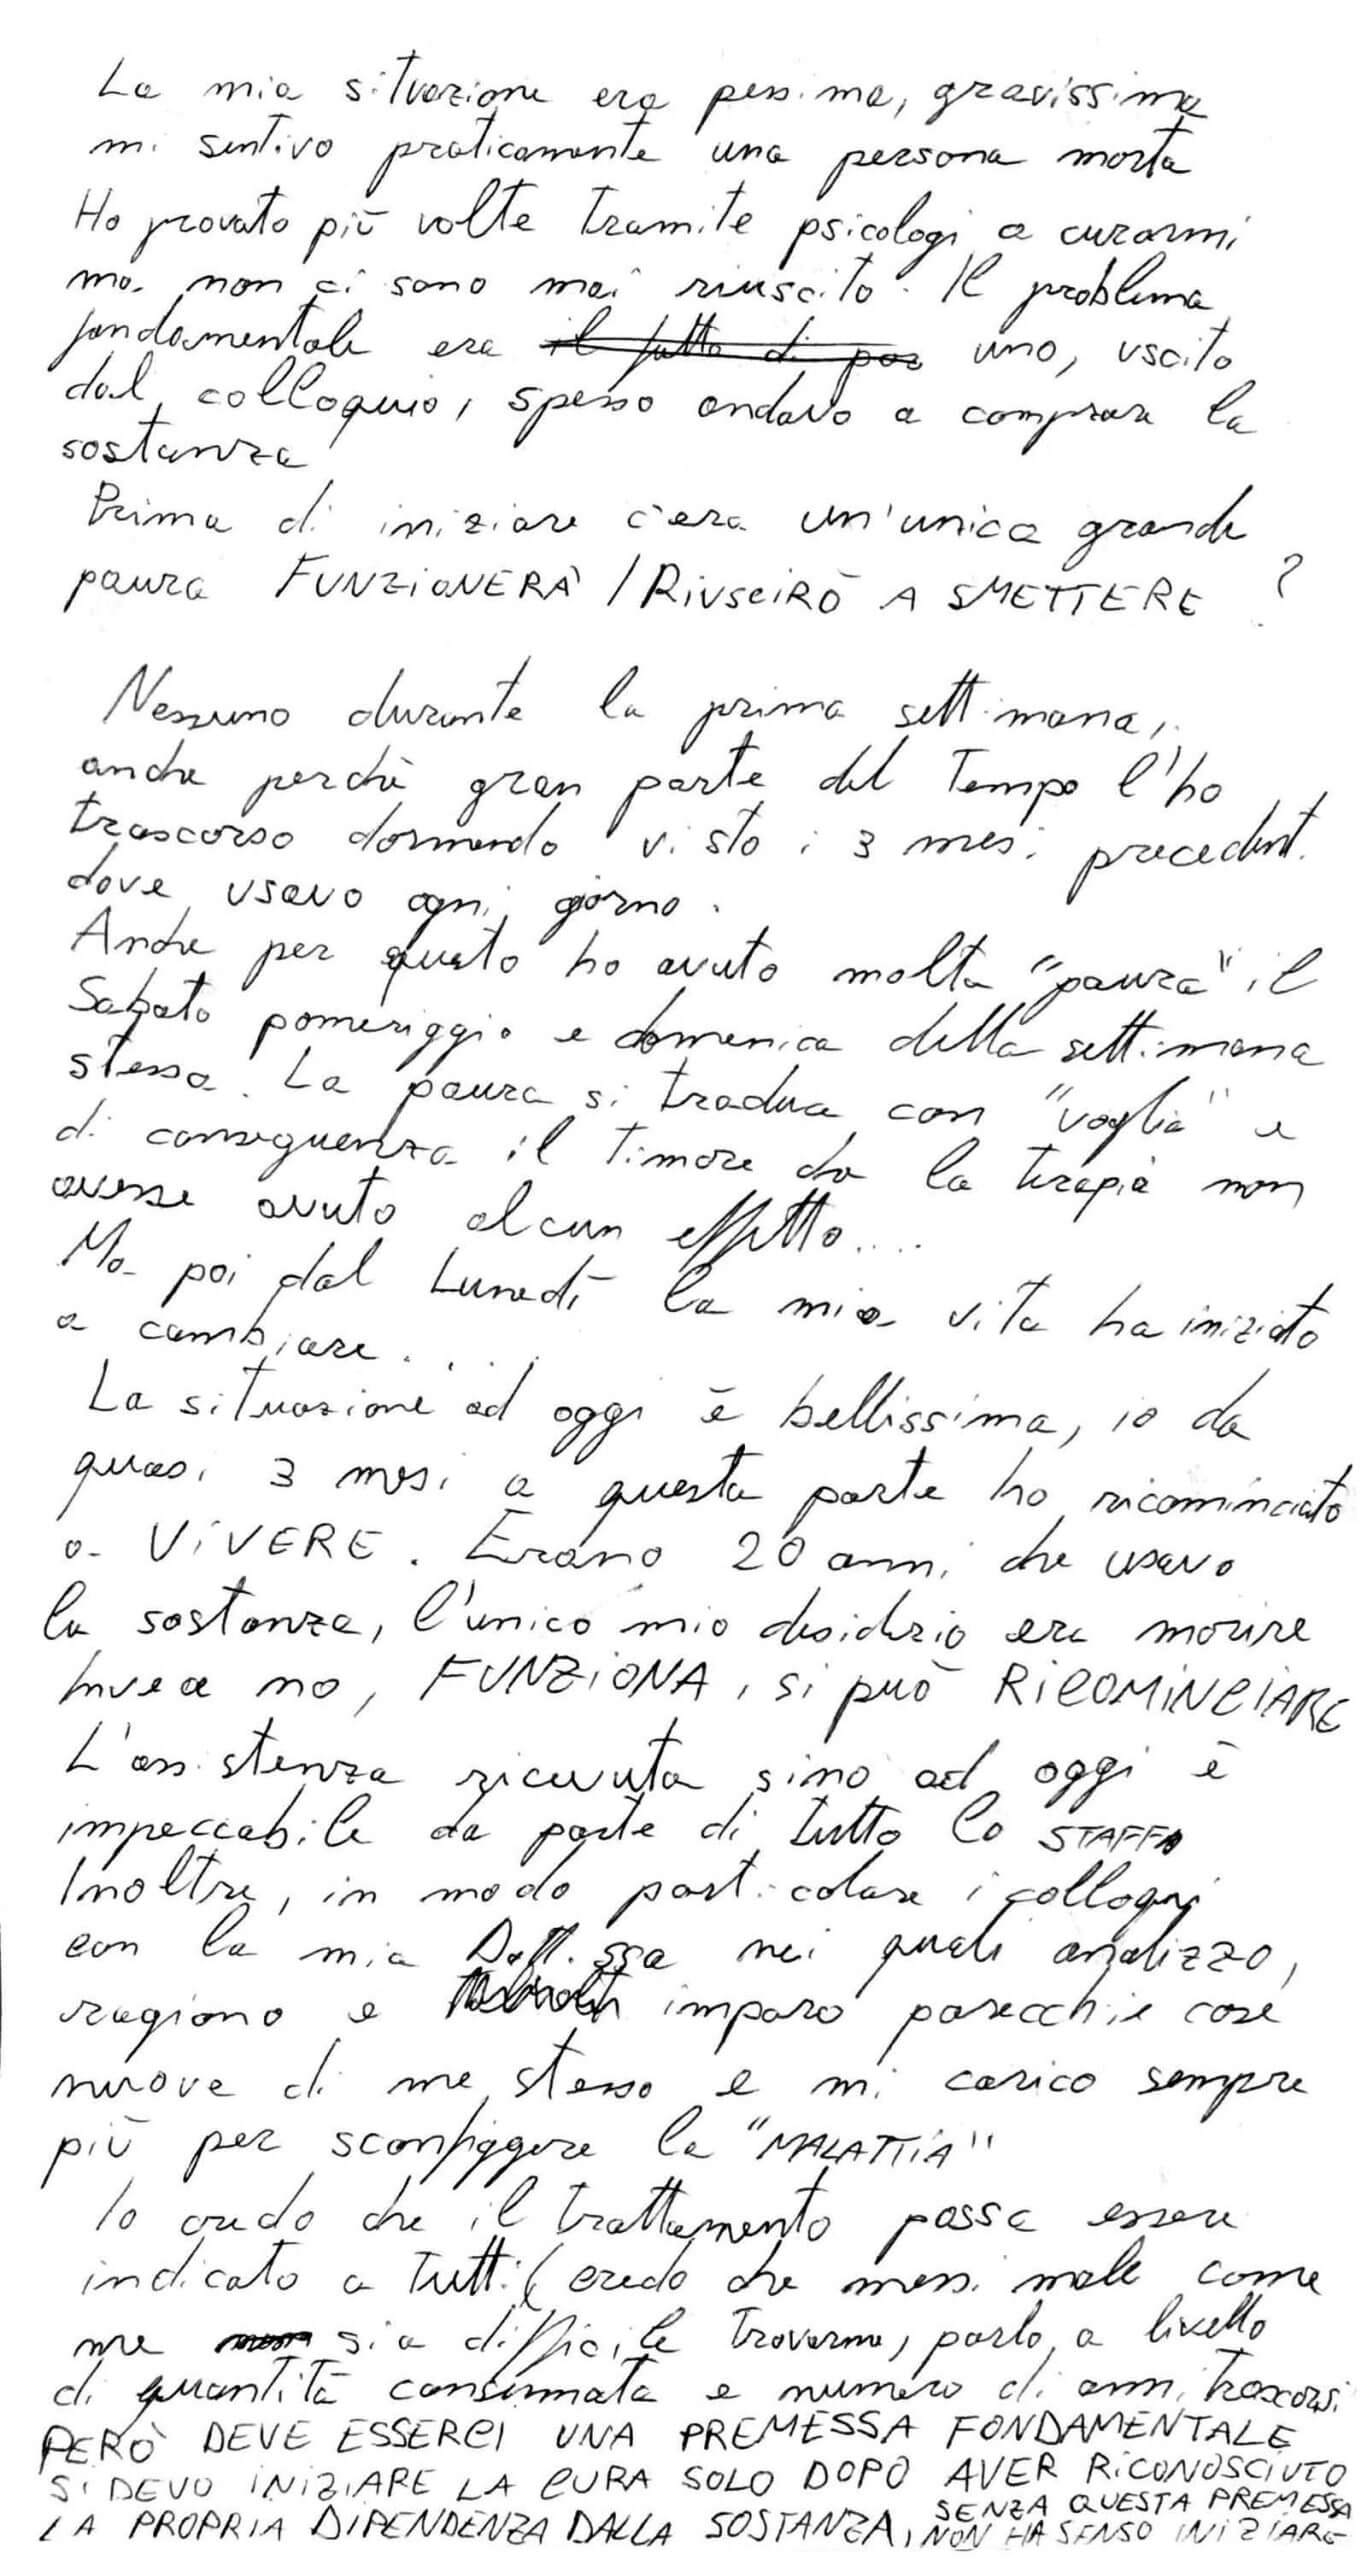 La mia situazione era pessima, gravissima
mi sentivo praticamente una persona morta
Ho provato più volte tramite psicologi a curarmi
ma non ci sono mai riuscito. Il problema
fondamentale era il fatto di por uno, uscito
dal colloquio, spesso andavo a comprare la
sostanza
Prima di iniziare c'era un'unica grande
paura FUNZIONERÀ / RIUSCIRÒ A SMETTERE ?
Nessuno durante la prima settimana,
anche perchè gran parte del tempo l'ho
trascorso dormendo visto i 3 mesi precedent.
dove usavo ogni giorno.
Anche per questo ho avuto molta "paura" il
Sabato pomeriggio e domenica della settimana
stessa. La paura si traduce con "voglia" e
di conseguenza il timore che la terapia non
avesse avuto alcun effetto....
Ma poi dal Lunedì la mia vita ha iniziato
a cambiare....
La situazione ad oggi è bellissima, io da
quasi 3 mesi a questa parte ho ricominciato
a VIVERE. Erano 20 anni che usavo
la sostanza, l'unico mio desiderio era morire
Invece no, FUNZIONA, si può RICOMINCIARE
L'assistenza ricevuta sino ad oggi è
impeccabile da parte di tutto lo STAFF
Inoltre, in modo particolare i colloqui
con la mia Dott.ssa nei quali analizzo,
ragiono e imparo parecchie cose
nuove di me stesso e mi carico sempre
più per sconfiggere la "MALATTIA"
Io credo che il trattamento possa essere
indicato a tutti (credo che messi male come
me non sia difficile trovarne, parlo a livello
di quantità consumata e numero di anni trascorsi
PERÒ DEVE ESSERCI UNA PREMESSA FONDAMENTALE
SI DEVO INIZIARE LA CURA SOLO DOPO AVER RICONOSCIUTO
LA PROPRIA DIPENDENZA DALLA SOSTANZA, SENZA QUESTA PREMESSA
NON HA SENSO INIZIARE